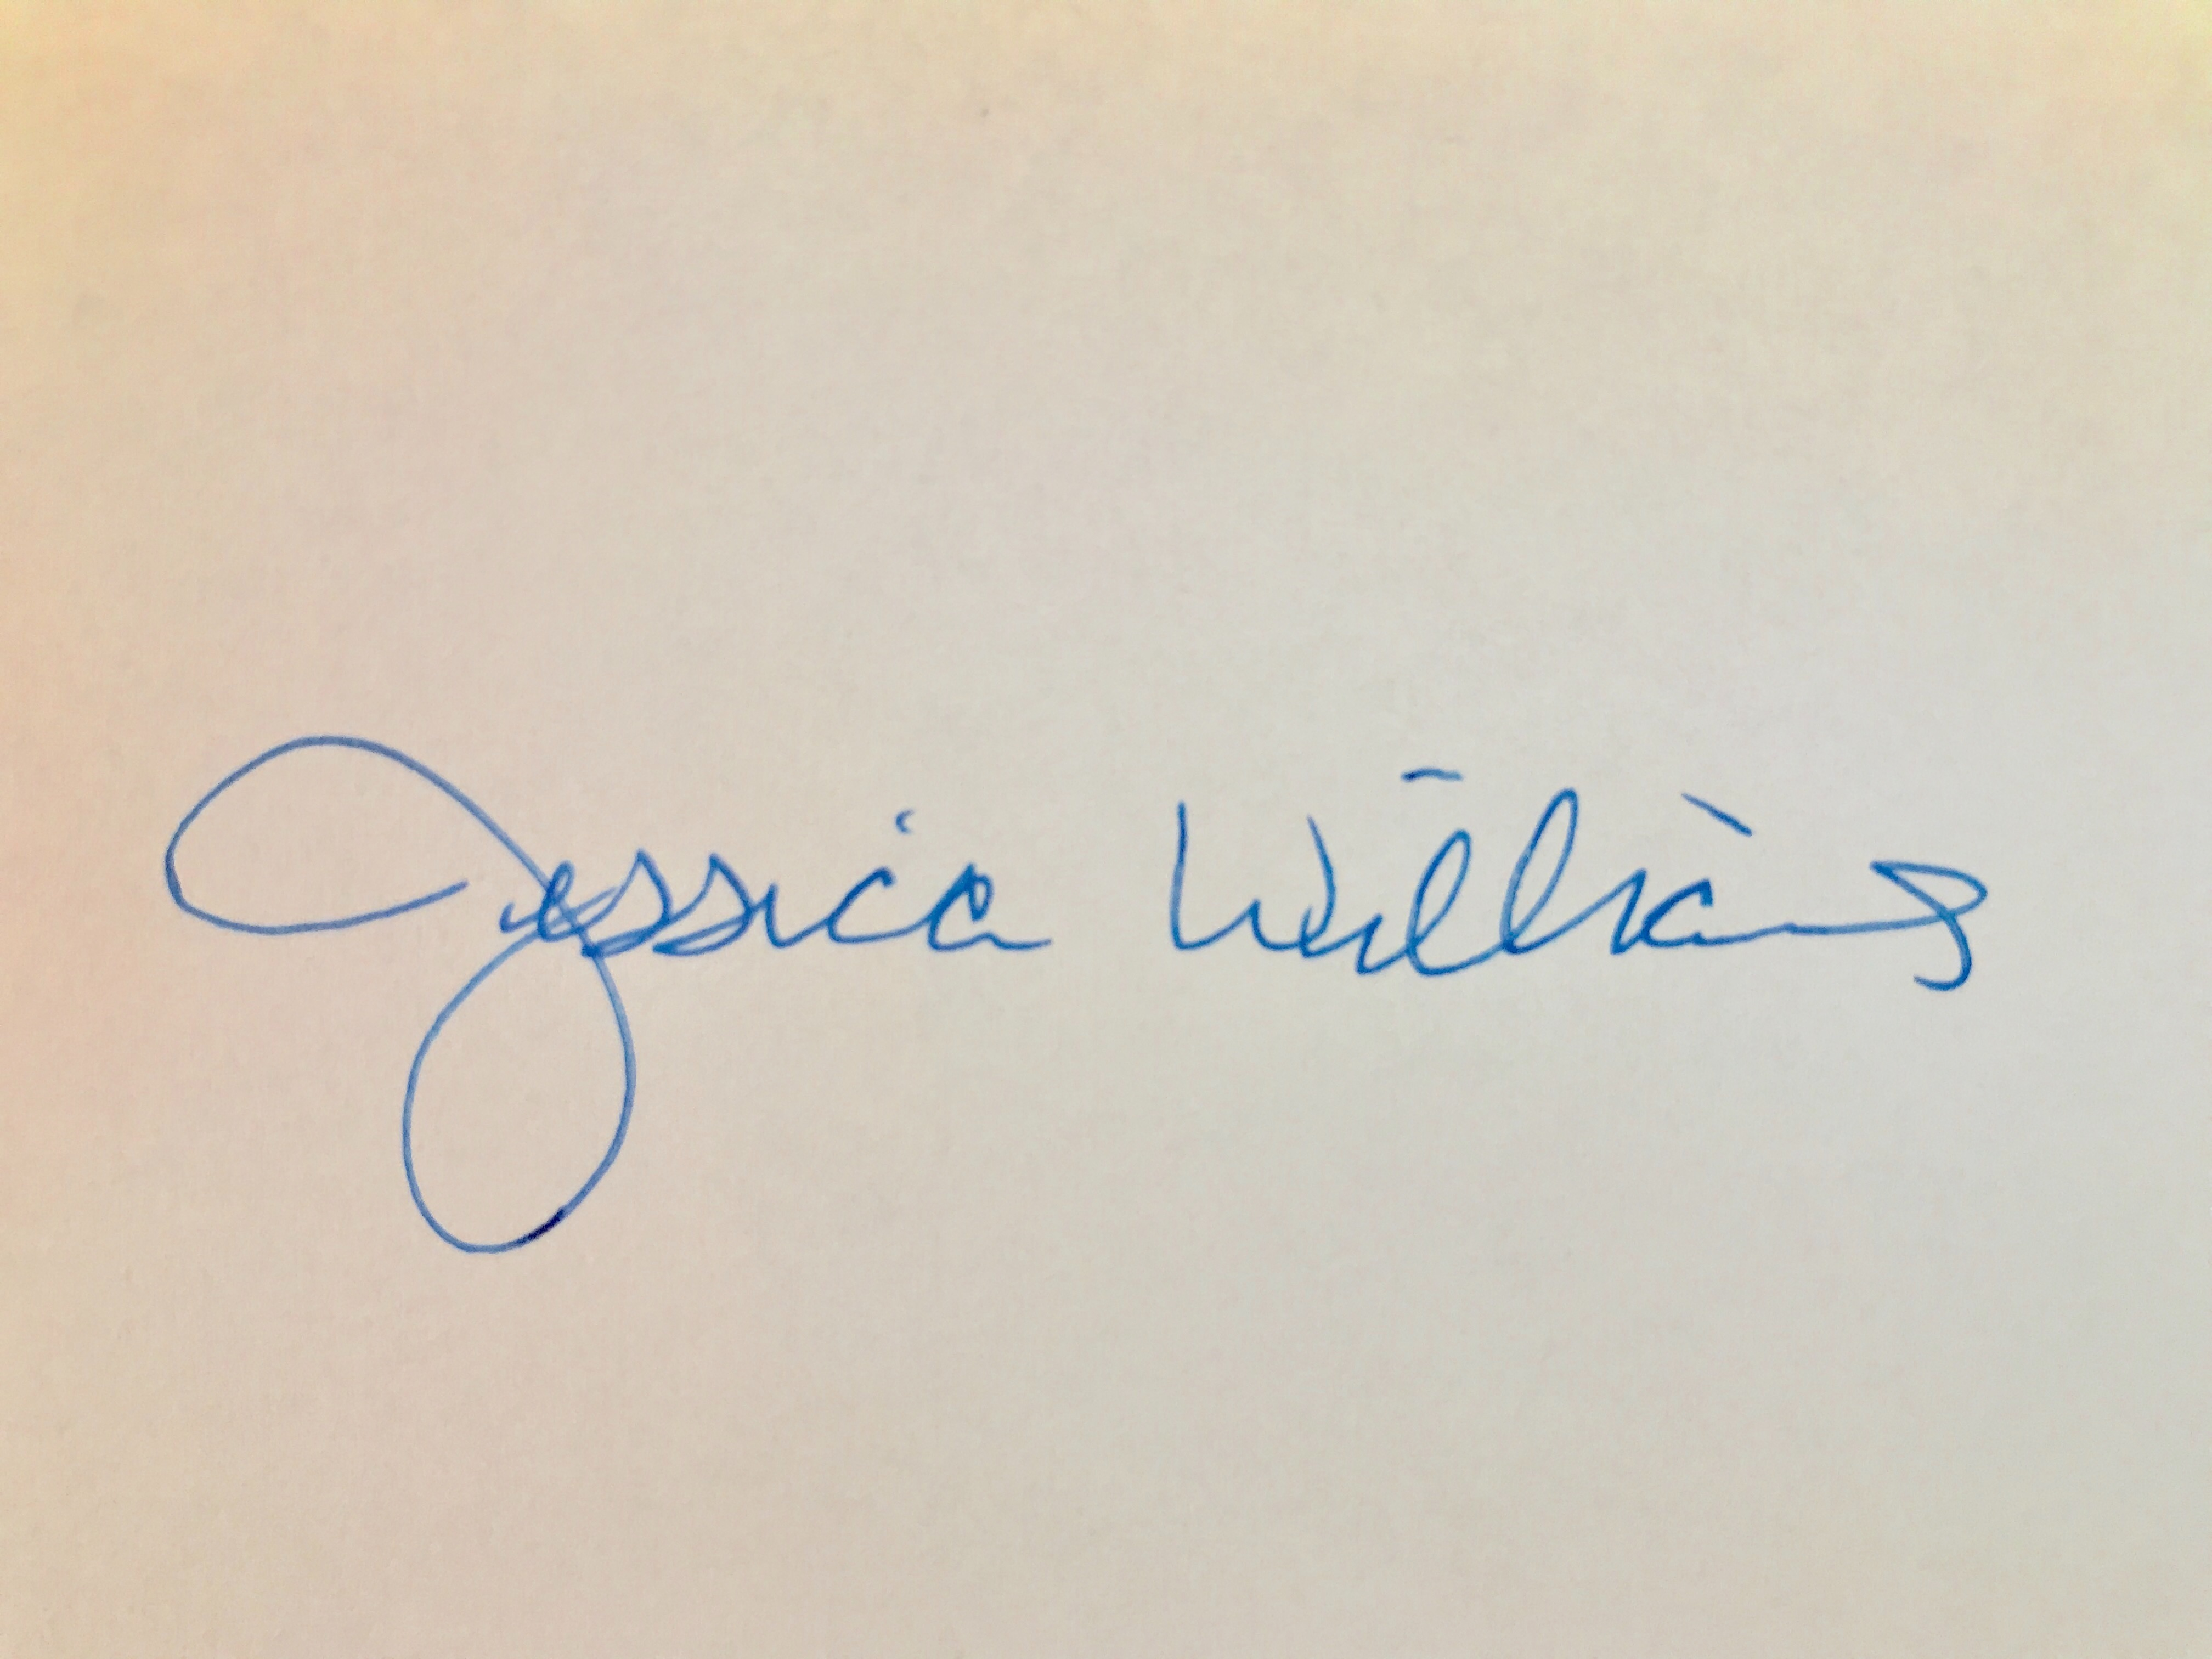 Jessica Williams